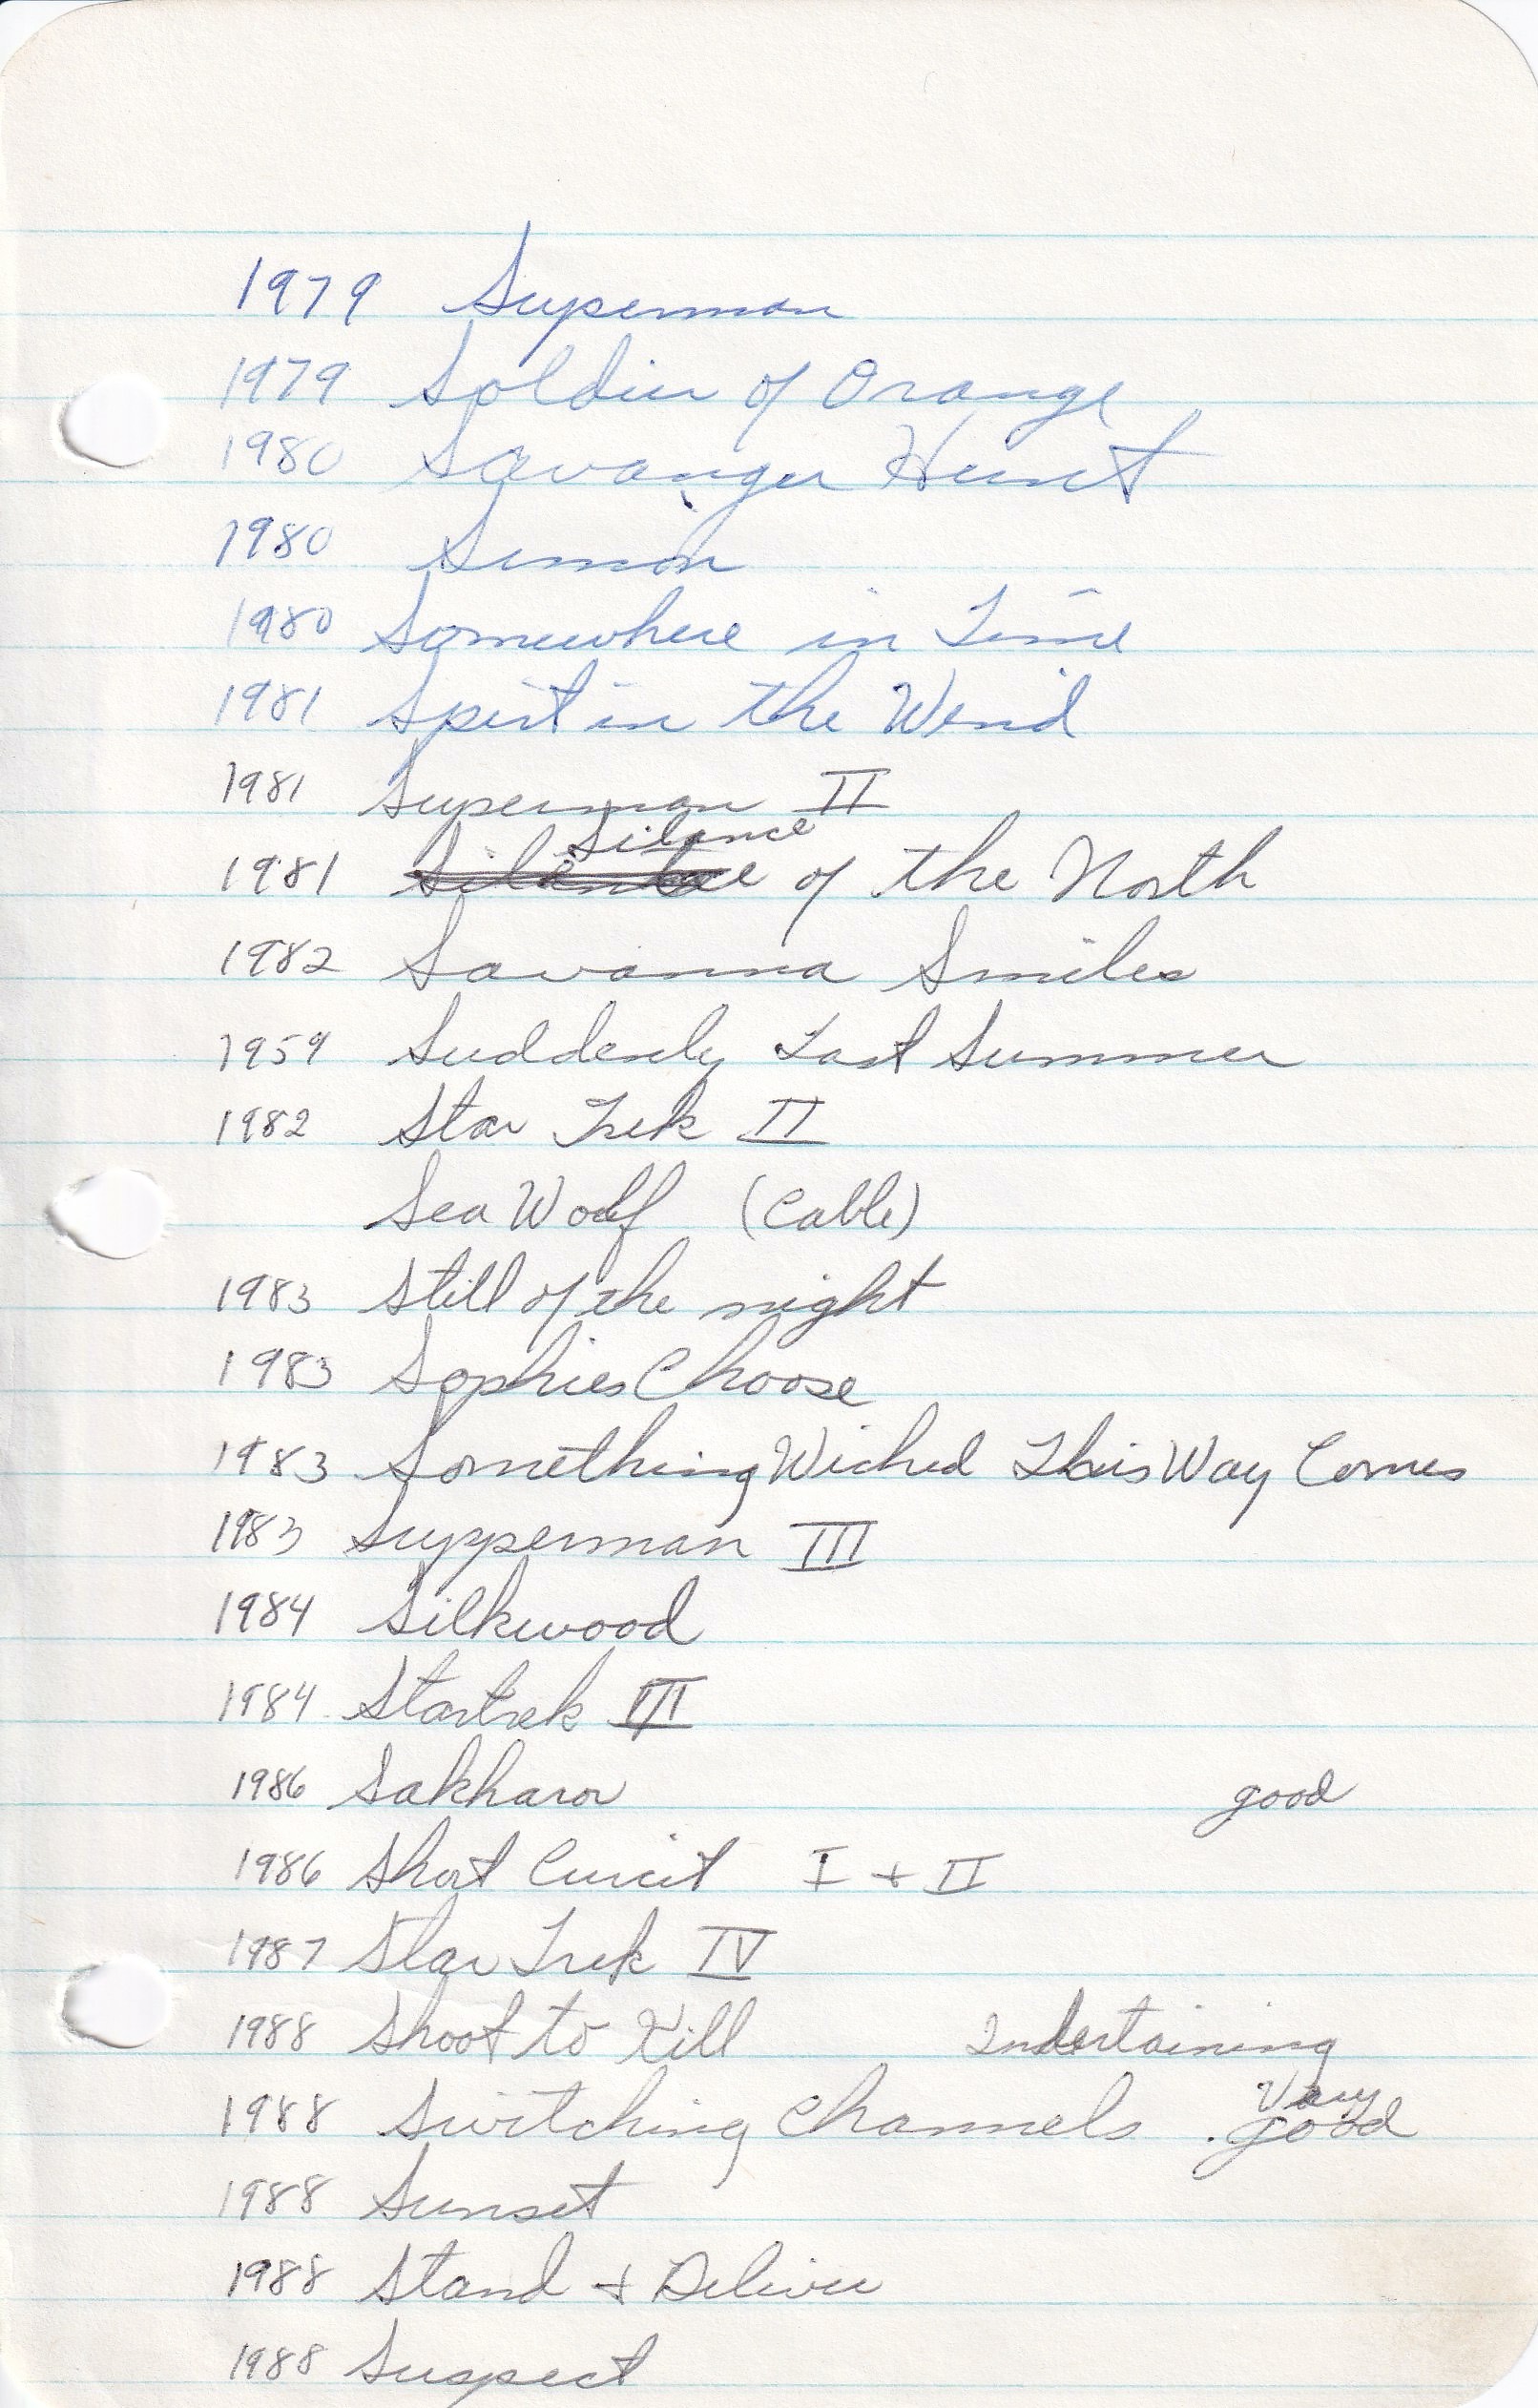 1979 Superman
1979 Soldier of Orange
1980 Savanger Hunt
1980 Simon
1980 Somewhere in Time
1981 Spirt in the Wind
1981 Superman II
Silance
1981 of the North
1982 Savanna Smiles
1959 Suddenly Last Summer
1982 Star Trek II
Sea Woolf (Cable)
1983 Still of the night
1983 Sophies Choose
1983 Something Wicked This Way Comes
1983 Supperman III
1984 Silkwood
1984 Startrek III
1986 Sakharov good
1986 Short Curcit I + II
1987 Star Trek IV
1988 Shoot to Kill Indertaining
Vary
1988 Switching Channels . good
1988 Sunset
1988 Stand + Deliver
1988 Suspect